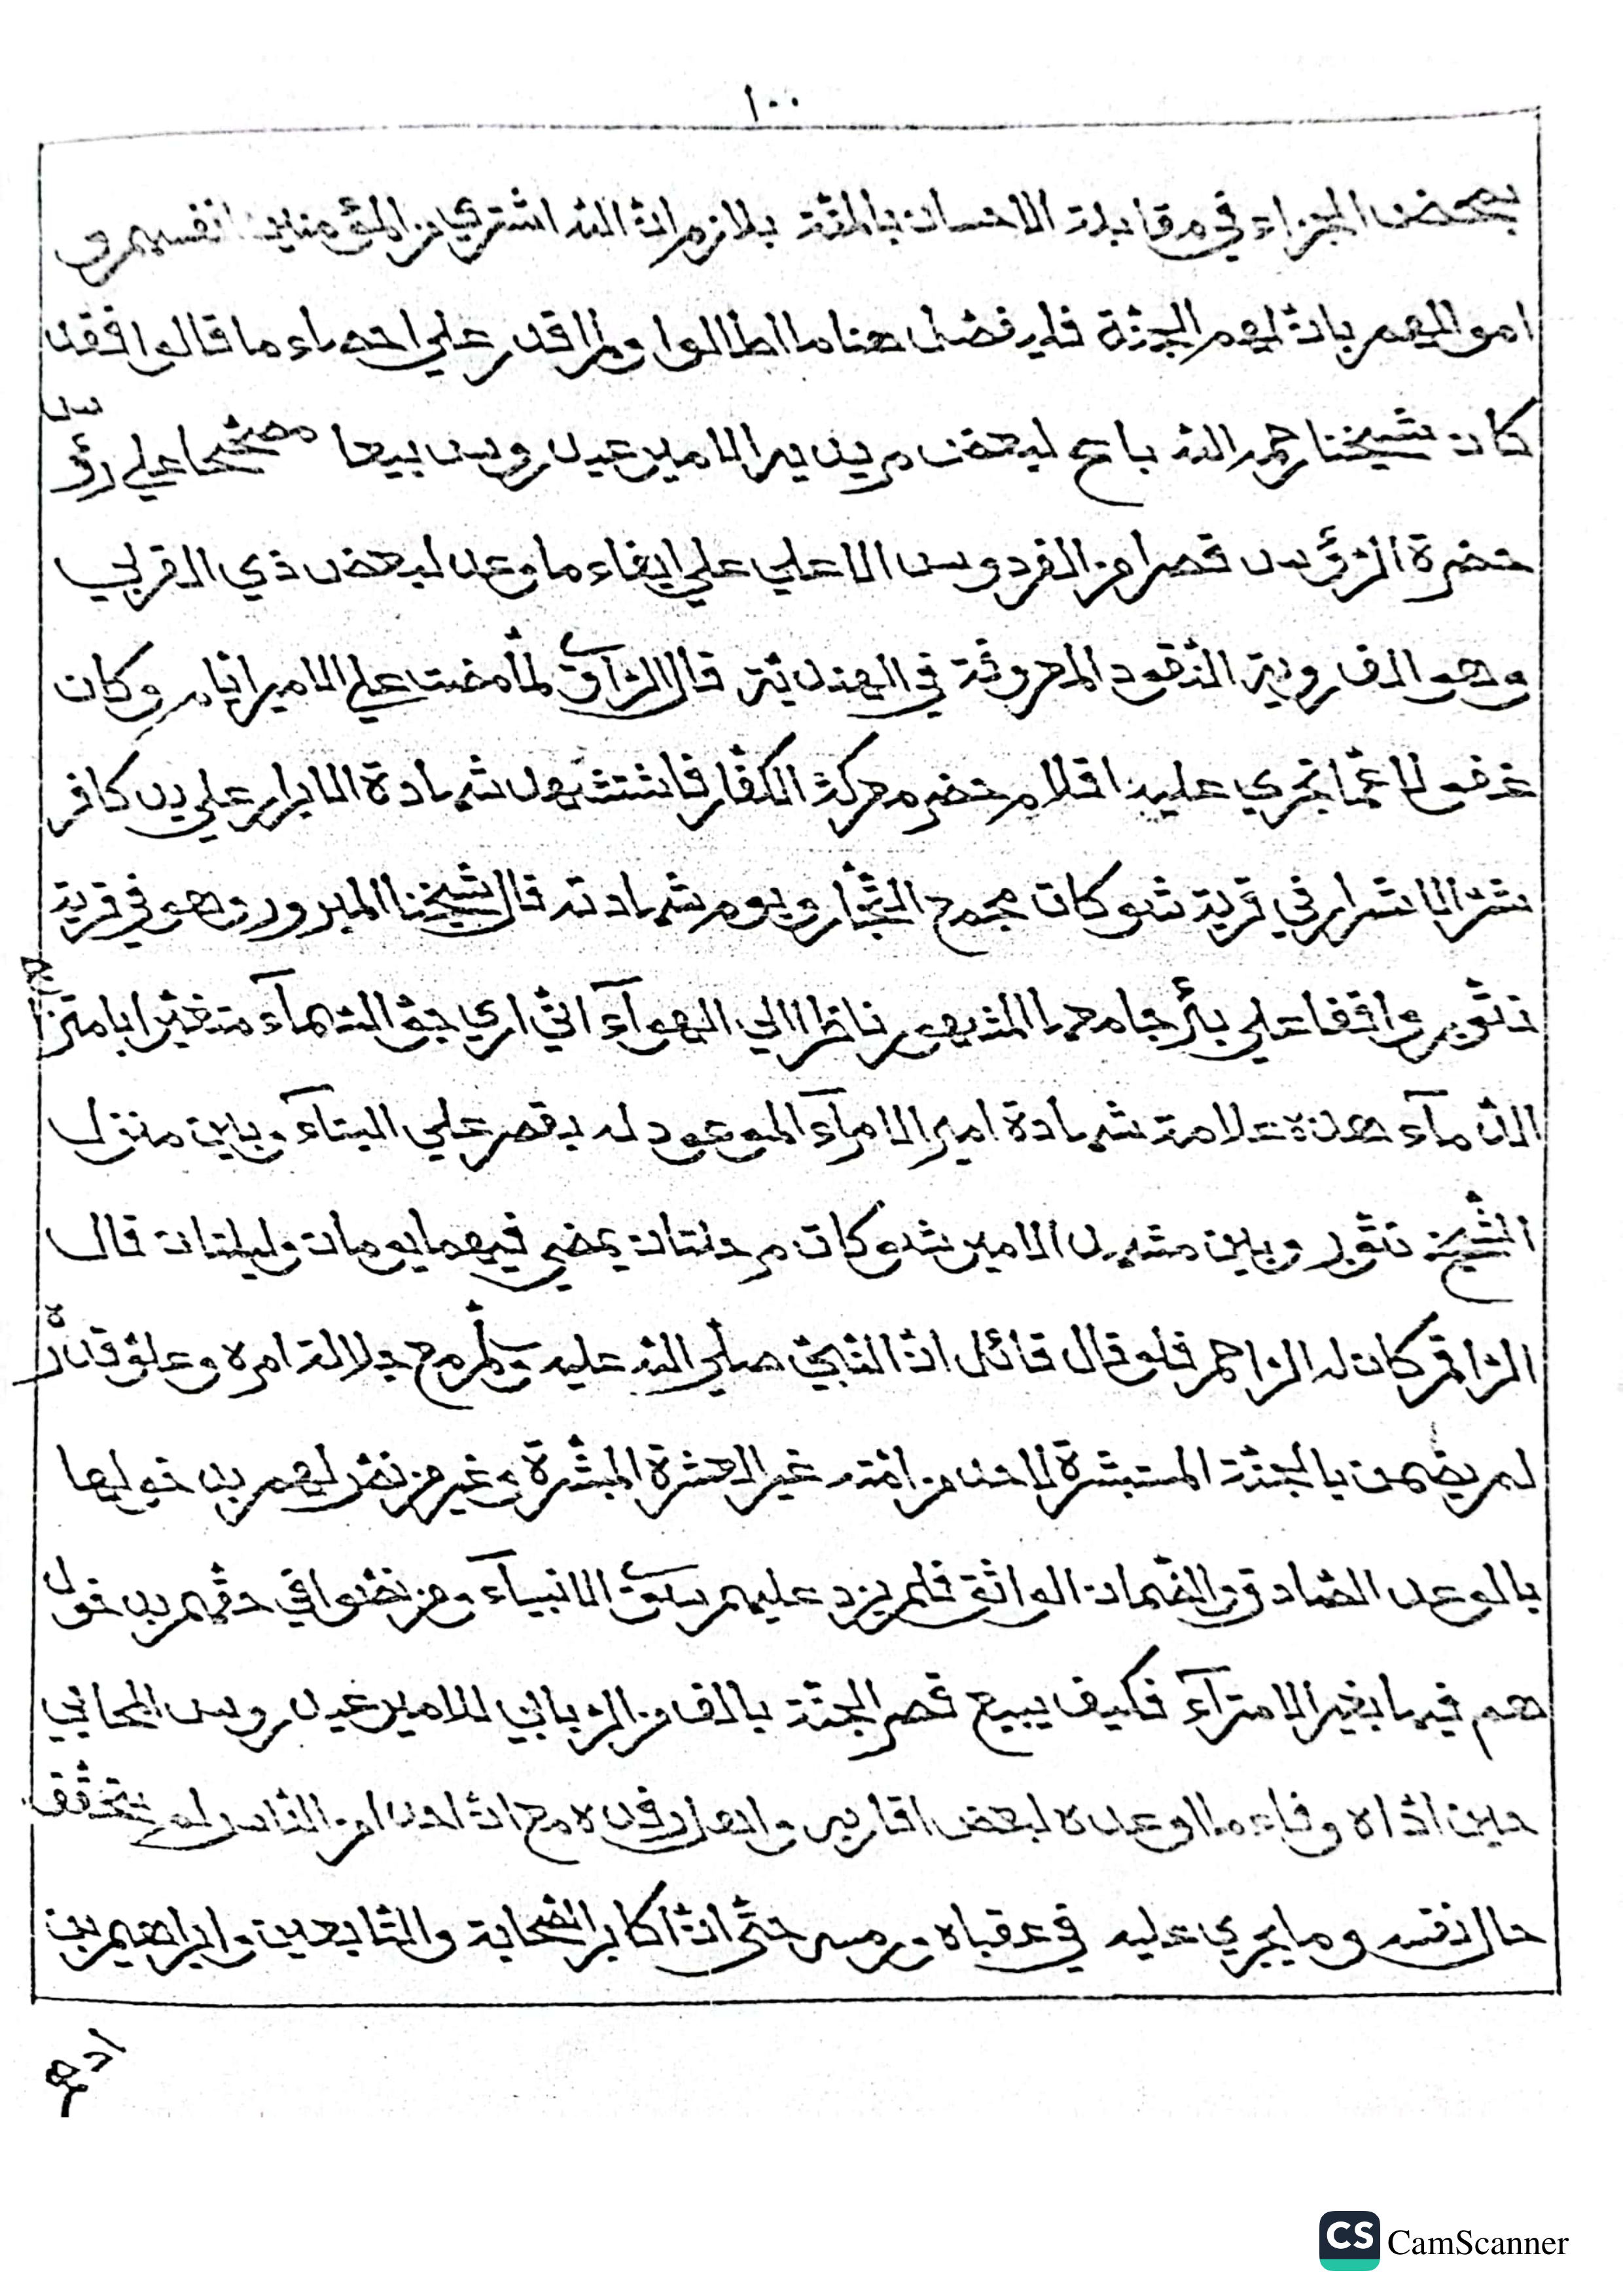 ١٠٠
بعض الجزاء في مقابلة الاحسان بالمنّة بلازم انّ الله اشتري من المؤمنين انفسهم و
اموالهم بانّ لهم الجنّة فلم نفصّل هنا ما اطالوا ولم اقدر علي احصاء ما قالوا فقد
كان شيخنا رحمه الله باع لبعض مريديه الامير عيدروس بيعا مصحّحا علي رؤس
حضرة الرّؤس قصرا من الفردوس الاعلي علي ايفاء ما وعد لبعض ذي القربي
وهو الف روبية النّقود المعروفة في الهنديّة قال الرّاوي لمّا مضت علي الامير ايّام وكان
غفولا عمّا تجري عليه اقلام حضر معركة الكفّار فاستشهد شهادة الابرار علي يد كافر
شرّ الاشرار في قرية شوكات مجمع التّجّار ويوم شهادته قال شيخنا المبرور وهو في قرية
نتّور واقفا علي بئر جامعها المشهور ناظرا الي الهوآء انّي اري جوّ السّمآء متغيّرا بامتزاج
الدّمآء هذه علامة شهادة امير الامرآء الموعود له بقصر علي البنآء وبين منزل
الشّيخ نتّور وبين مشهد الامير شوكات مرحلتان يمضي فيهما يومان وليلتان قال
الرّاقم كان له الرّاحم فلو قال قائل انّ النّبيّ صلّي الله عليه وسلّم مع جلالة امره وعلوّ قدره
لم يضمن بالجنّة المستبشرة لاحد من امّته غير العشرة المبشّرة وغير من نصّ لهم بدخولها
بالوعد الصّادق والضّمان الواثق فلم يزد عليهم سوي الانبيآء ومن نصّوا في حقّهم بدخول
هم فيها بغير الامترآء فكيف يبيع قصر الجنّة بالف من الرّبابي للامير عيدروس المحابي
حين ادّاه وفاء ما اوعده لبعض اقاربه وانعاد فده مع انّ احدا من النّاس لم يتحقّق
حال نفسه وما يجري عليه في عقباه ورمسه حتّي انّ اكابر الصّحابة والتّابعين وابراهيم بن
ادهم
CS CamScanner